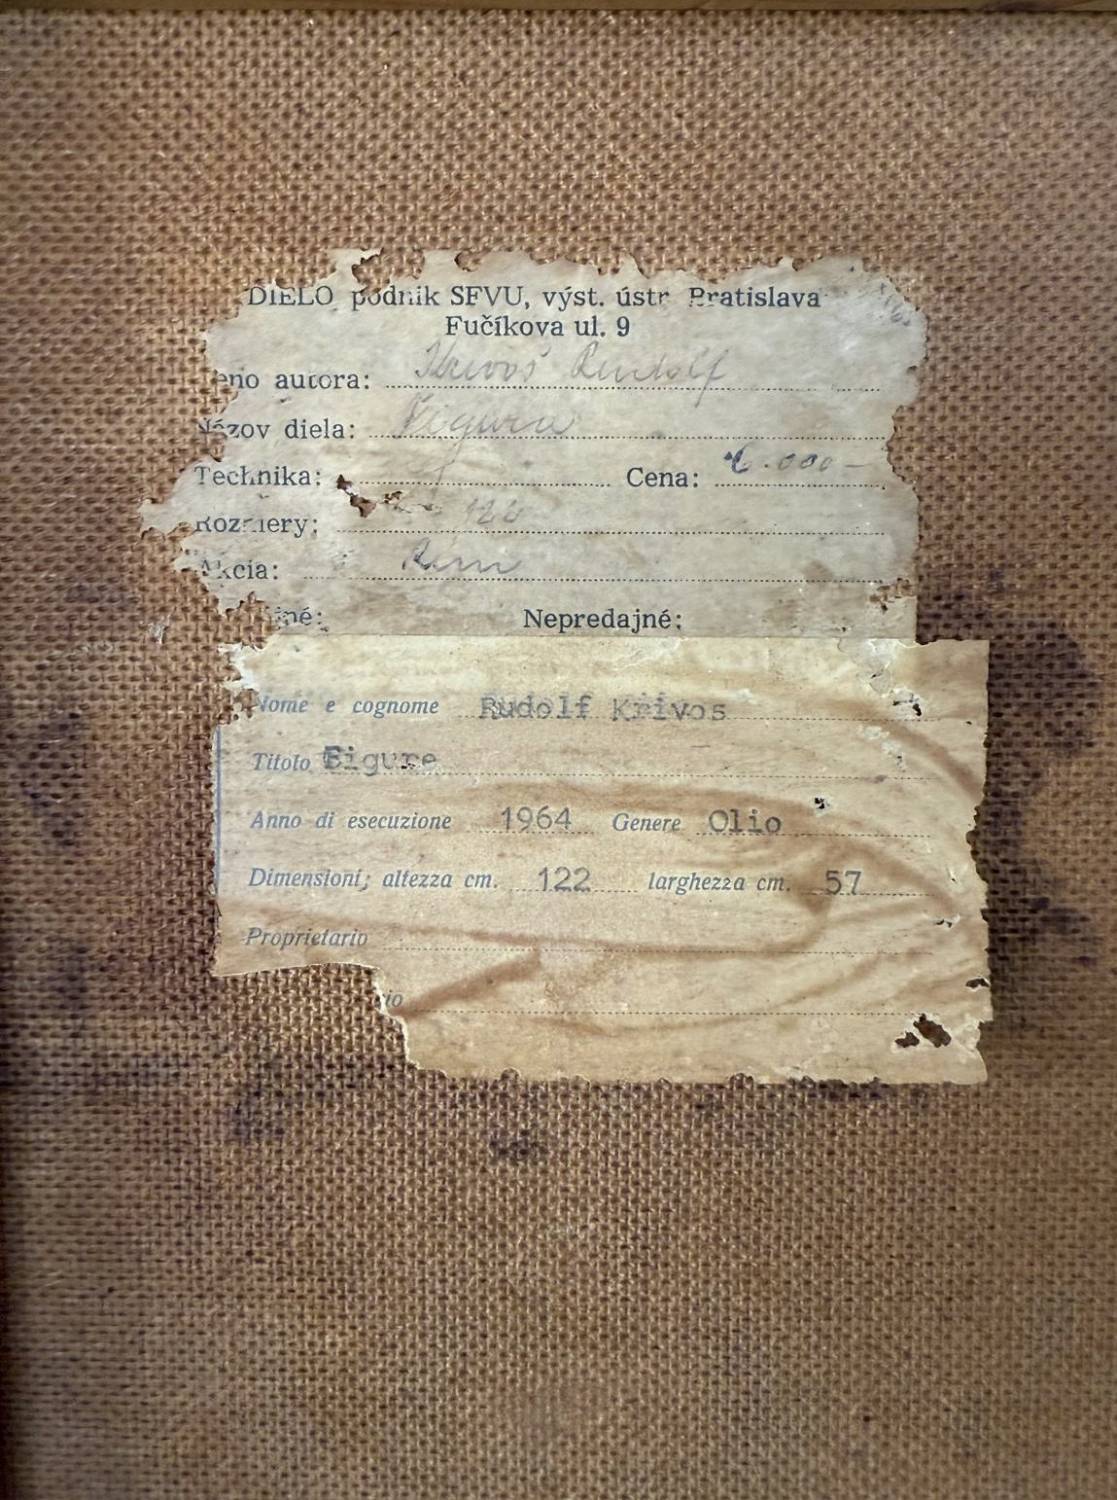 DIELO podnik SFVU, výst. ústr. Bratislava
Fučíkova ul. 9
eno autora: Krivoš Rudolf
Názov diela: Figura
Technika: Cena: 6.000-
Rozmery: 122
Akcia: Rim
né: Nepredajné:
Nome e cognome Rudolf Krivos
Titolo Figure
Anno di esecuzione 1964 Genere Olio
Dimensioni; altezza cm. 122 larghezza cm. 57
Proprietario
io